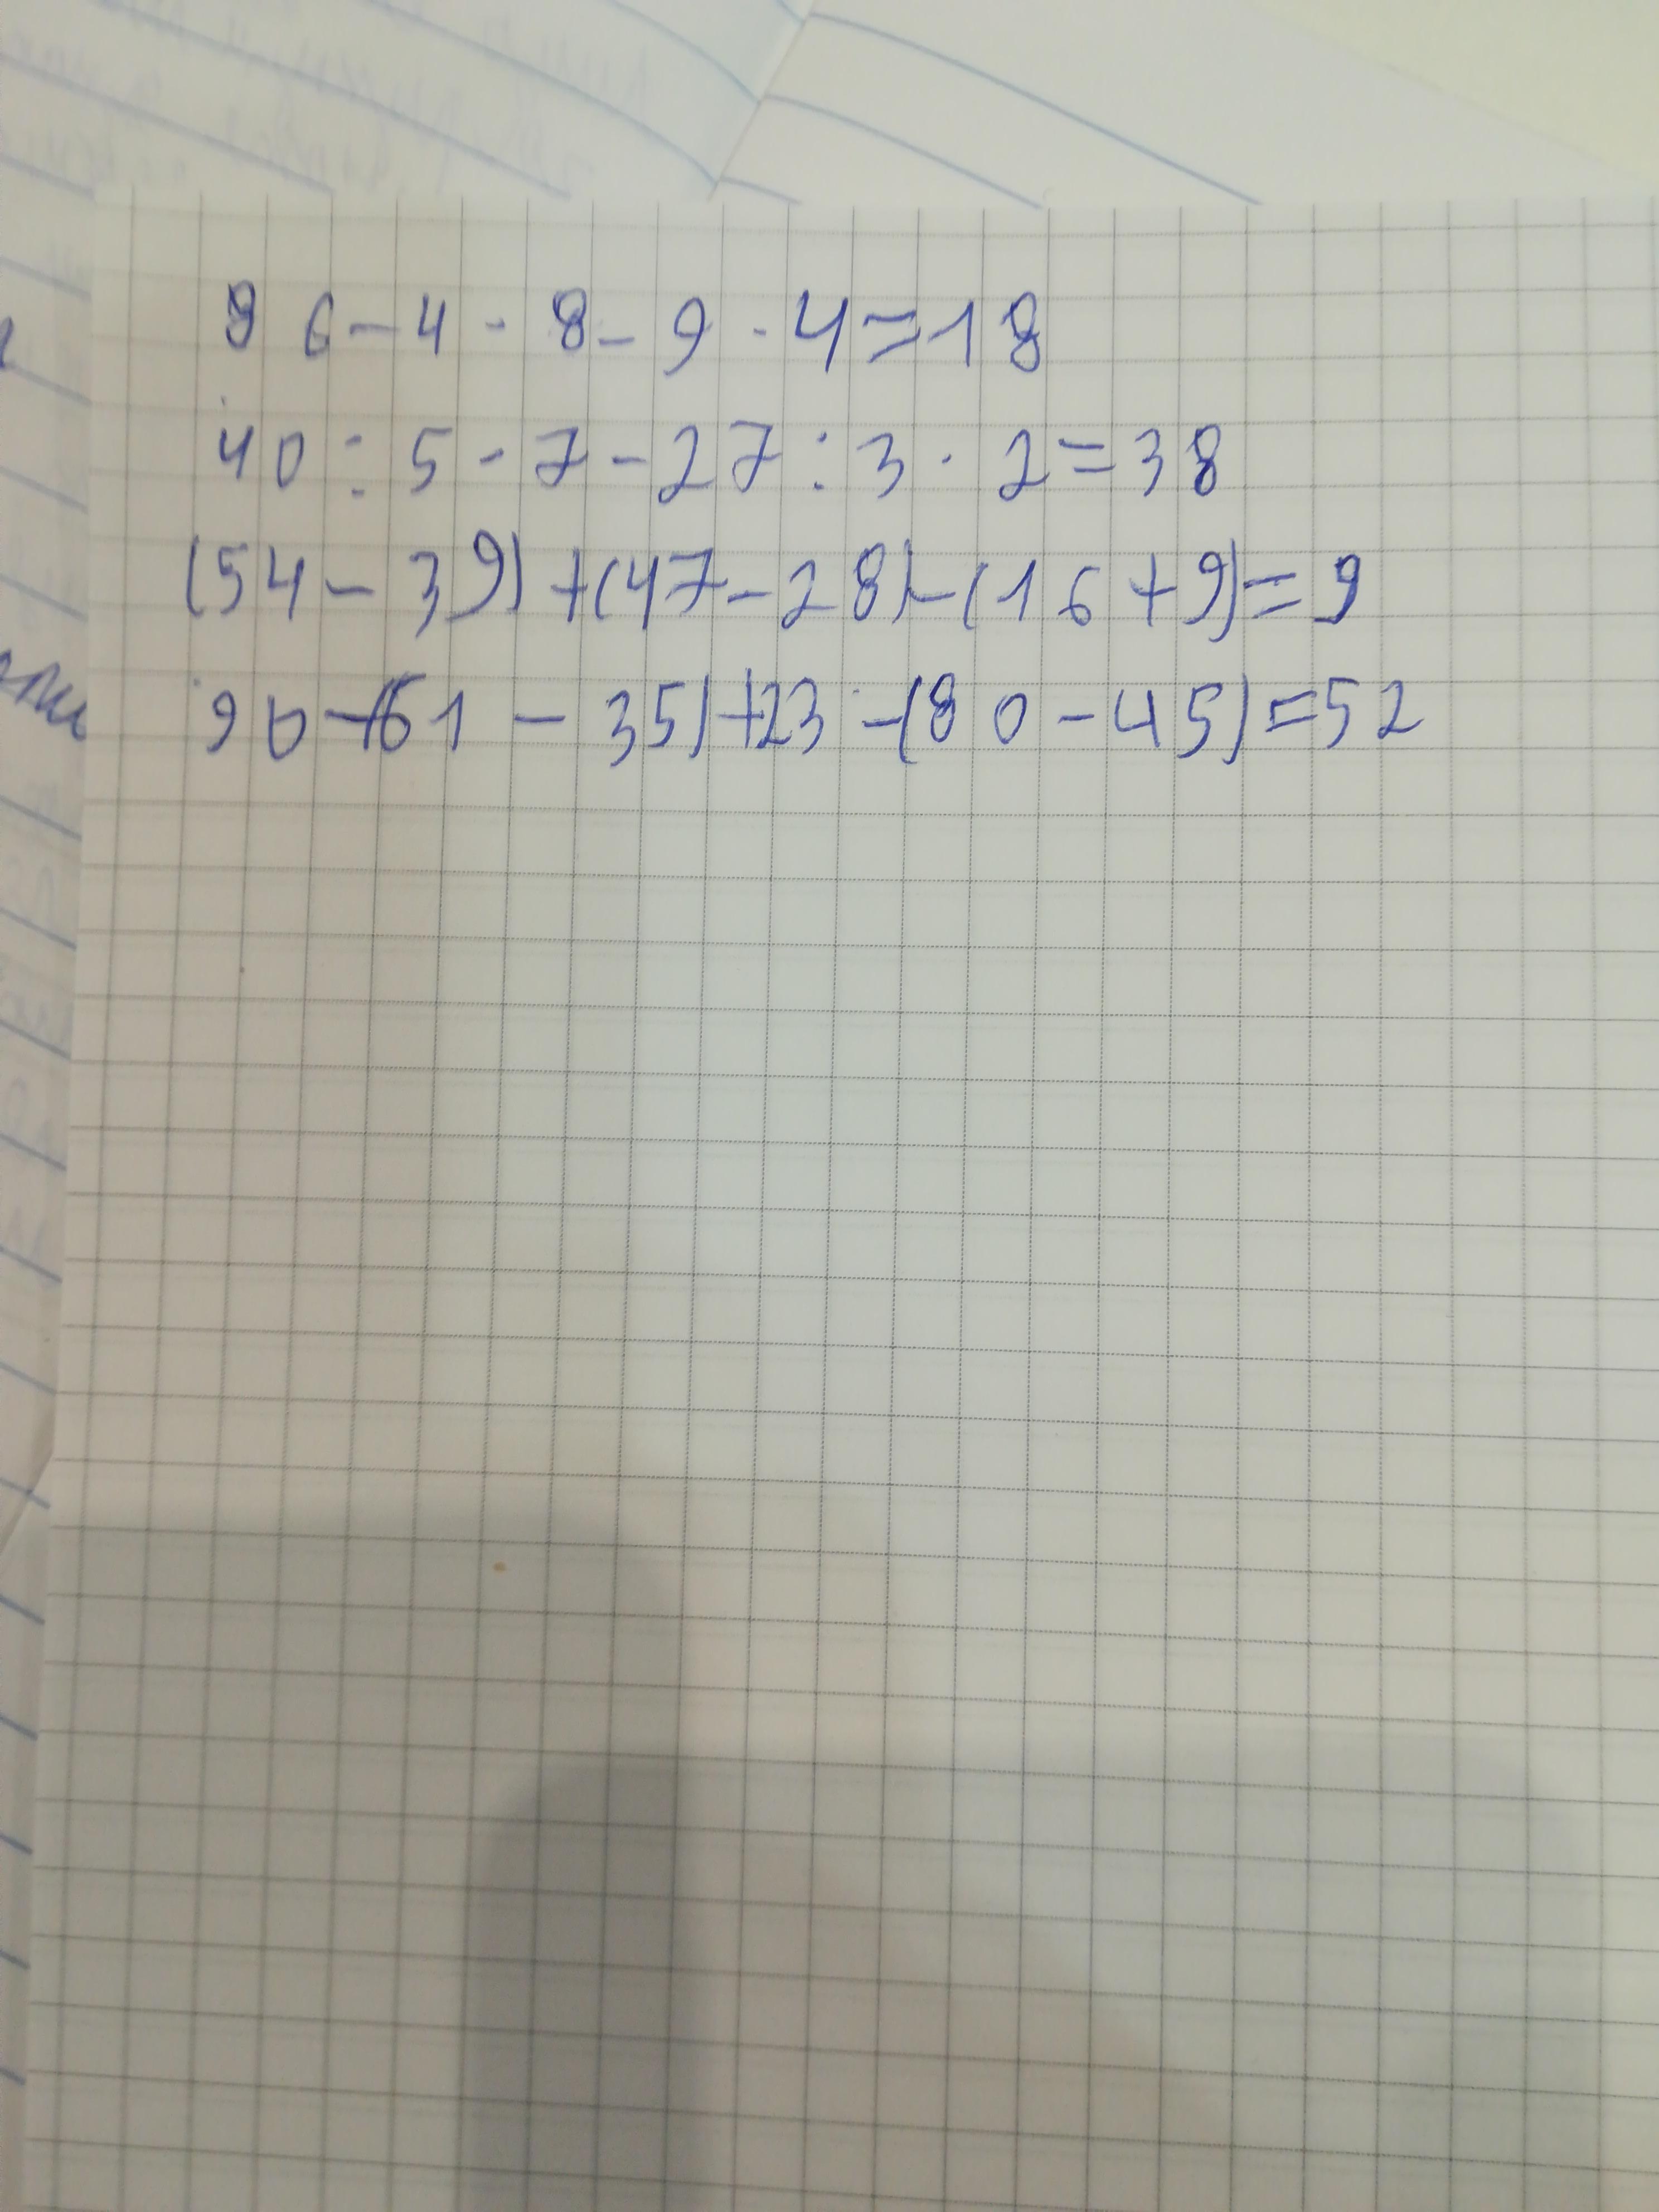 86-4·8-9·4=18
40:5·7-27:3·2=38
(54-39)+(47-28)-(16+9)=9
90-(61-35)+23-(80-45)=52